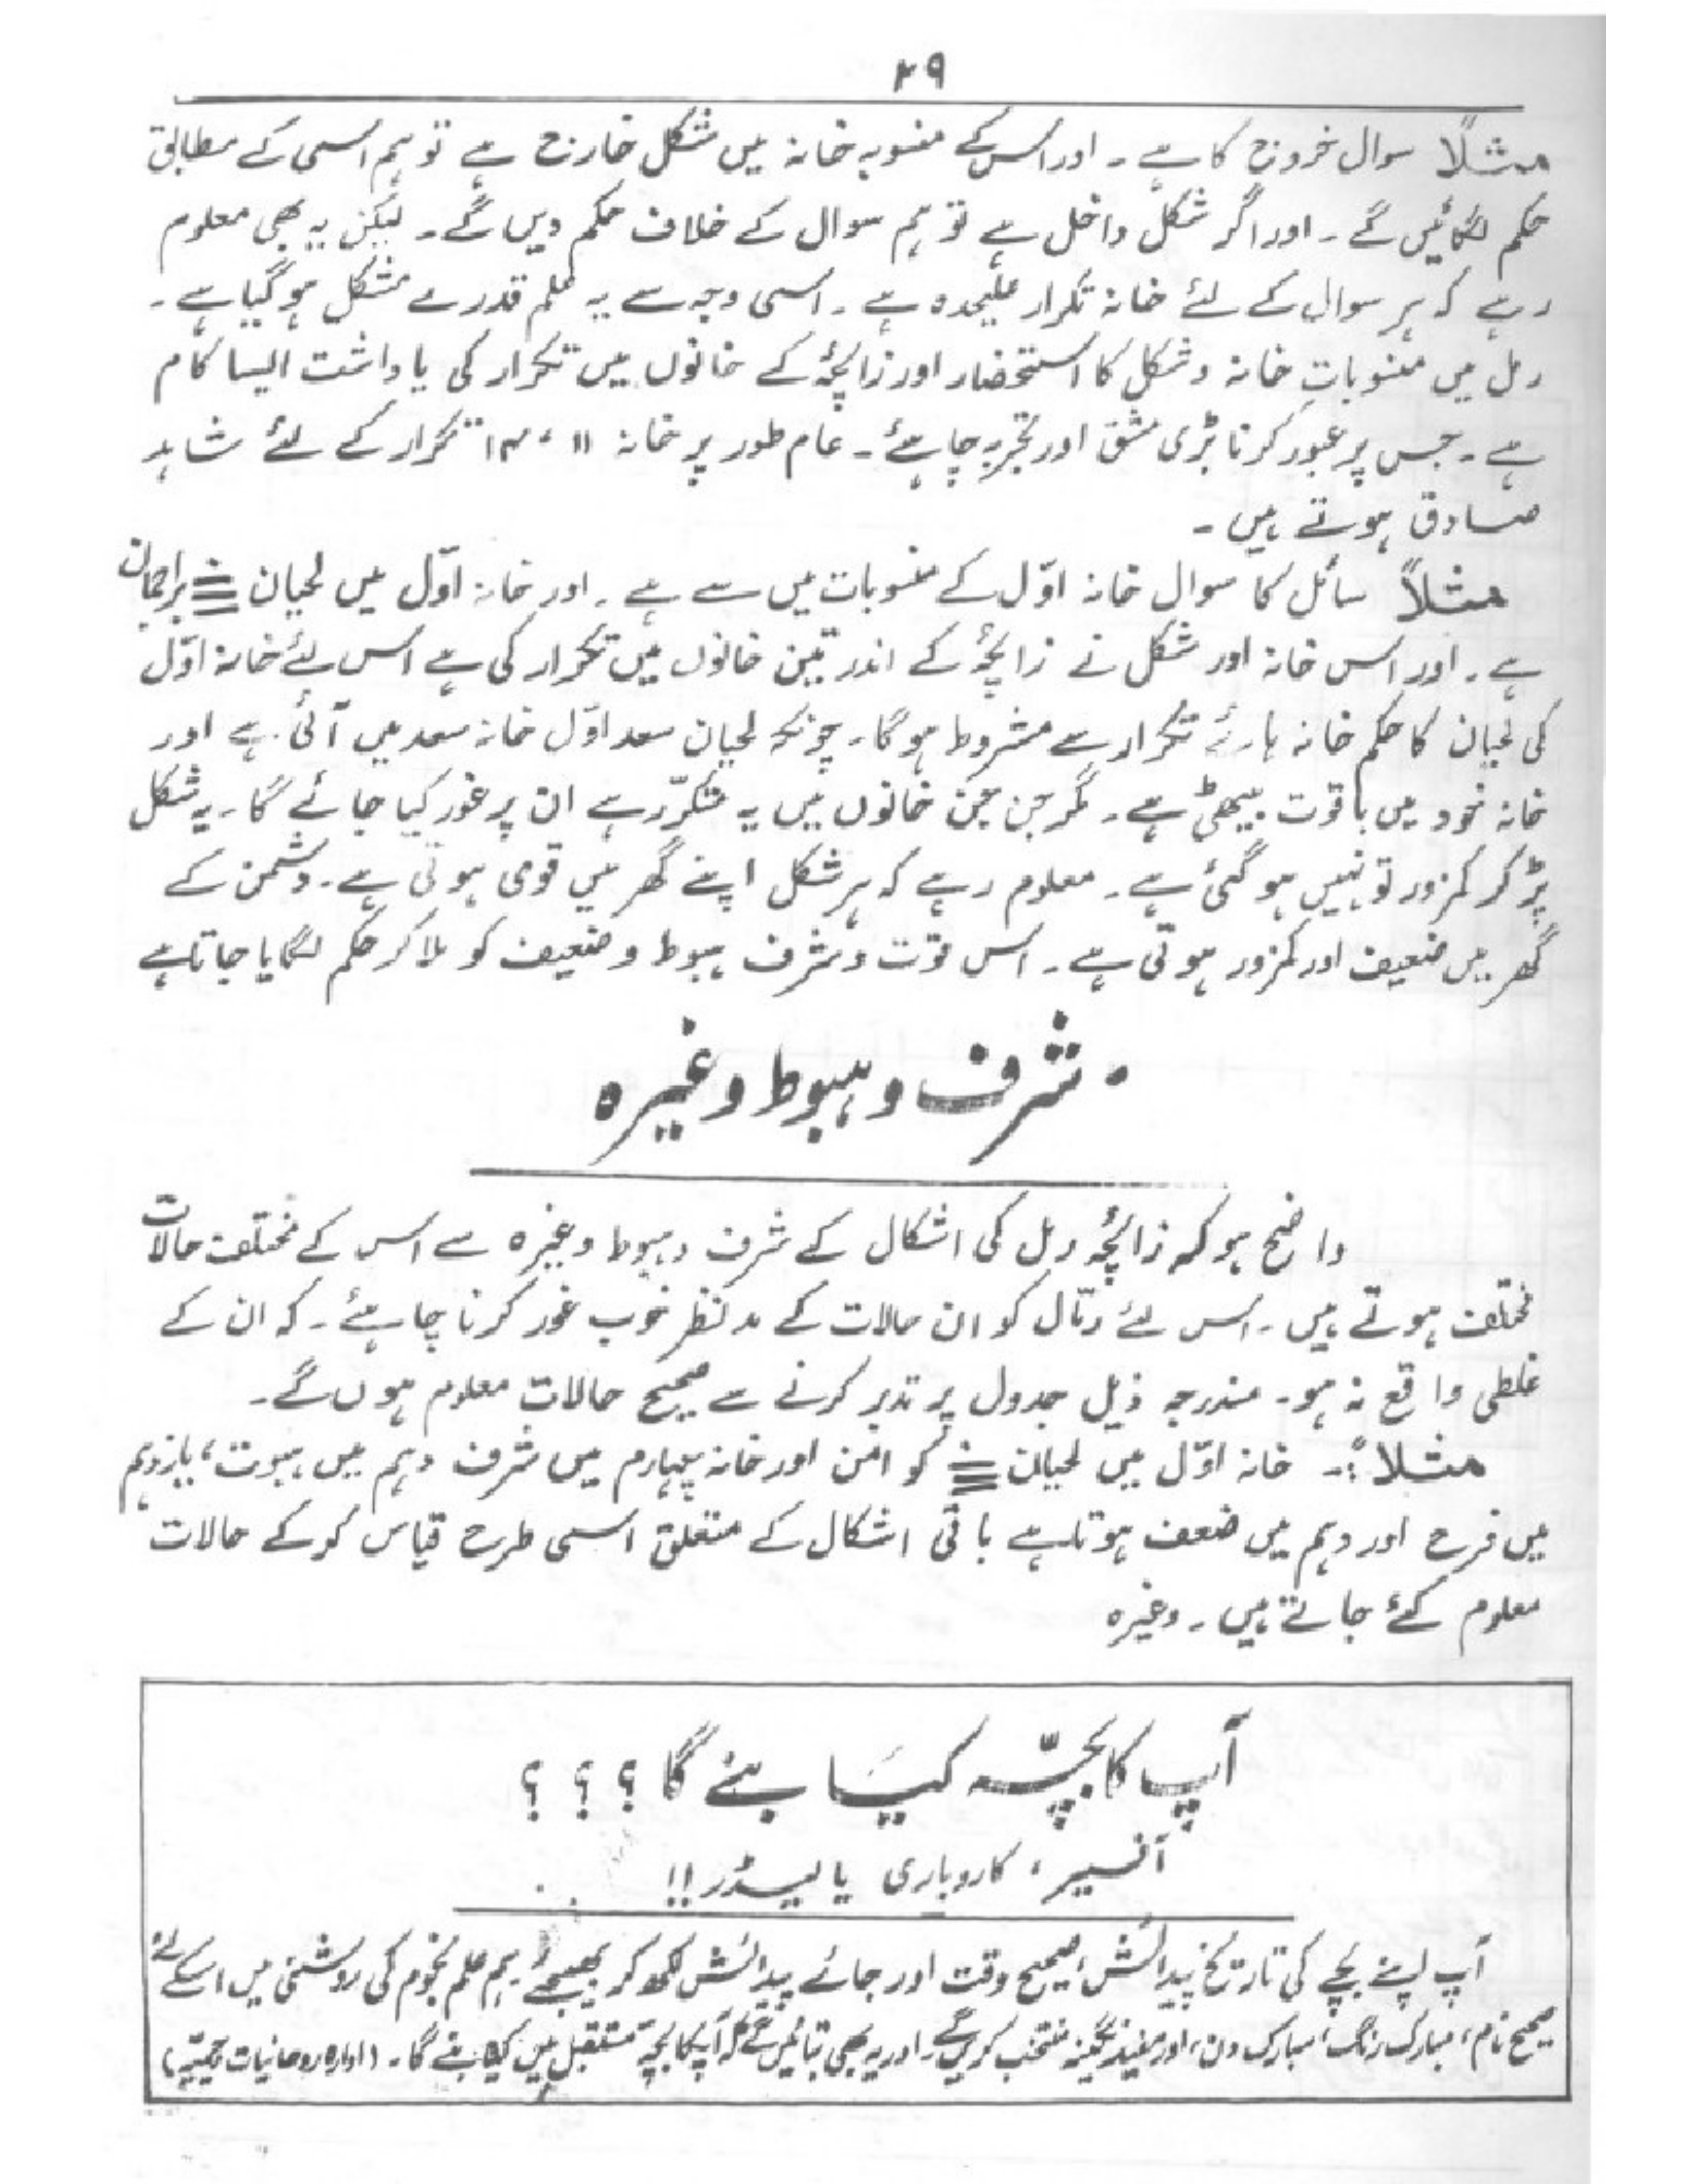 ۲۹
مثلاً سوال خروج کا ہے ۔ اور اس کے منسوبہ خانہ میں شکل خارج ہے تو ہم اسی کے مطابق
حکم لگائیں گے ۔ اور اگر شکل داخل ہے تو ہم سوال کے خلاف حکم دیں گے ۔ لیکن یہ بھی معلوم
رہے کہ ہر سوال کے لئے خانہ تکرار علیحدہ ہے ۔ اسی وجہ سے یہ علم قدرے مشکل ہو گیا ہے ۔
رمل میں منسوباتِ خانہ و شکل کا استحضار اور زائچہ کے خانوں میں تکرار کی یاداشت ایسا کام
ہے ۔ جس پر عبور کرنا بڑی مشق اور تجربہ چاہئے ۔ عام طور پر خانہ ۱۱ ، ۱۳ تکرار کے لئے شاہد
صادق ہوتے ہیں ۔
مثلاً سائل کا سوال خانہ اوّل کے منسوبات میں سے ہے ۔ اور خانہ اوّل میں لحیان براجمان
ہے ۔ اور اس خانہ اور شکل نے زائچہ کے اندر تین خانوں میں تکرار کی ہے اس لئے خانہ اوّل
کی لحیان کا حکم خانہ ہائے تکرار سے مشروط ہوگا ۔ چونکہ لحیان سعد اوّل خانہ سعد میں آئی ہے اور
خانہ خود میں باقوت بیٹھی ہے ۔ مگر جن جن خانوں میں یہ متکرّر ہے ان پر غور کیا جائے گا ۔ یہ شکل
پڑ کر کمزور تو نہیں ہو گئی ہے ۔ معلوم رہے کہ ہر شکل اپنے گھر میں قوی ہوتی ہے ۔ دشمن کے
گھر میں ضعیف اور کمزور ہوتی ہے ۔ اس قوت و شرف ہبوط و ضعیف کو ملا کر حکم لگایا جاتا ہے
۰ شرف و ہبوط وغیرہ
واضح ہو کہ زائچہ رمل کی اشکال کے شرف و ہبوط وغیرہ سے اس کے مختلف حالات
مختلف ہوتے ہیں ۔ اس لئے رمّال کو ان حالات کے مدنظر خوب غور کرنا چاہئے ۔ کہ ان کے
غلطی واقع نہ ہو ۔ مندرجہ ذیل جدول پر تدبر کرنے سے صحیح حالات معلوم ہوں گے ۔
مثلاً :۔ خانہ اوّل میں لحیان کو امن اور خانہ چہارم میں شرف دہم میں ہبوت ، یازدہم
میں فرح اور دہم میں ضعف ہوتا ہے باقی اشکال کے متعلق اسی طرح قیاس کر کے حالات
معلوم کئے جاتے ہیں ۔ وغیرہ
آپ کا بچّہ کیسَا بنے گا ؟ ؟ ؟
آفیسر ، کاروباری یا لیڈر !!
آپ اپنے بچے کی تاریخ پیدائش ، صحیح وقت اور جائے پیدائش لکھ کر بھیجئے ہم علم نجوم کی روشنی میں اسکے لئے
صحیح نام ، مبارک رنگ ، مبارک دن ، اور مفید نگینہ منتخب کریں گے ۔ اور یہ بھی بتائیں گے کہ آپکا بچہ مستقبل میں کیا بنے گا ۔ (ادارہ روحانیات)